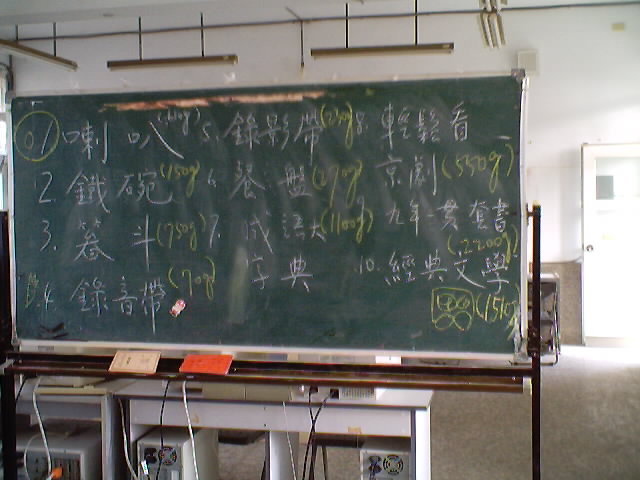 1. 喇叭
2. 鐵碗 (150g)
3. 畚斗 (750g)
4. 錄音帶 (70g)
5. 錄影帶
6. 餐盤
7. 成語大 (1100g)
字典
8. 輕鬆看
京劇 (550g)
9. 九年一貫套書
(2200g)
10. 經典文學